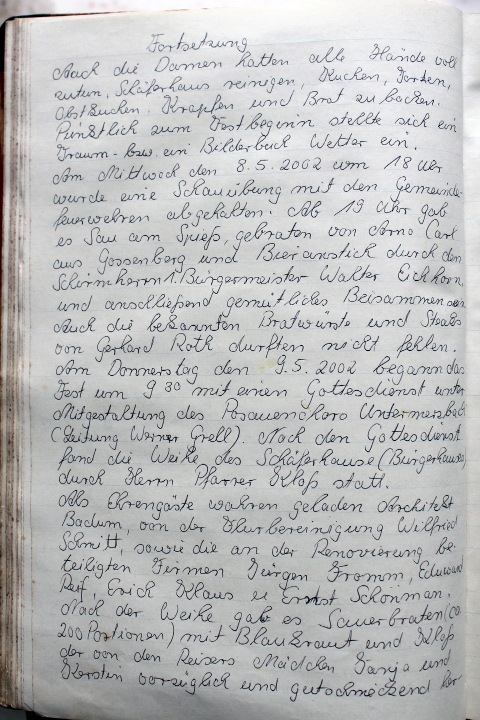 Fortsetzung
Auch die Damen hatten alle Hände voll
zutun, Schäferhaus reinigen, Kuchen, Torten,
Obstkuchen, Krapfen und Brot zu backen.
Pünktlich zum Festbeginn stellte sich ein
Traum- bzw. ein Bilderbuch Wetter ein.
Am Mittwoch den 8.5.2002 um 18 Uhr
wurde eine Schauübung mit den Gemeinde-
feuerwehren abgehalten. Ab 19 Uhr gab
es Sau am Spieß, gebraten von Arno Carl
aus Gossenberg und Bieranstich durch den
Schirmherrn 1. Bürgermeister Walter Eichhorn
und anschließend gemütliches Beisammensein
Auch die bekannten Bratwürste und Steaks
von Gerhard Roth durften nicht fehlen.
Am Donnerstag den 9.5.2002 begann das
Fest um 9 30 mit einen Gottesdienst unter
Mitgestaltung des Posauenchoro Untermerzbach
(Leitung Werner Grell). Nach den Gottesdienst
fand die Weihe des Schäferhause (Bürgerhauses)
durch Herrn Pfarrer Kloß statt.
Als Ehrengäste wahren geladen Architekt
Badum, von der Flurbereinigung Wilfried
Schmitt, sowie die an der Renovierung be-
teiligten Firmen Jürgen Fromm, Eduard
Reif, Erich Klaus u Ernst Schönman.
Nach der Weihe gab es Sauerbraten (ca.
200 Portionen) mit Blaukraut und Kloß
der von den Reisers Mädchen Tanja und
Kersten vorzüglich und gutschmeckend her-